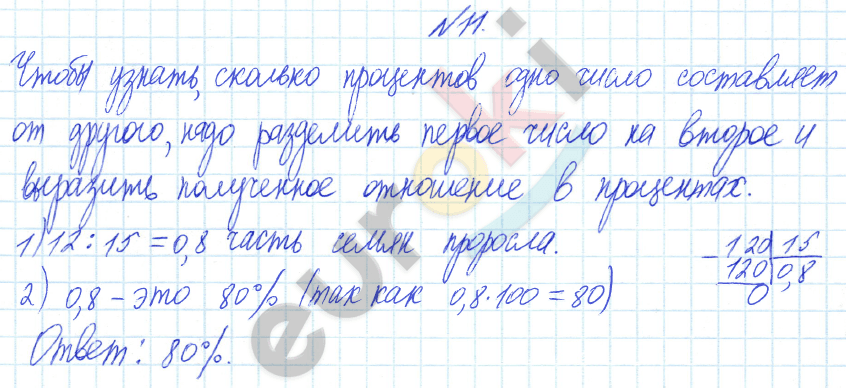 №11.
Чтобы узнать, сколько процентов одно число составляет
от другого, надо разделить первое число на второе и
выразить полученное отношение в процентах.
1) 12 : 15 = 0,8 часть семян проросла.
2) 0,8 – это 80% (так как 0,8·100 = 80)
Ответ: 80%.
– 120 15
120 0,8
0
euroki